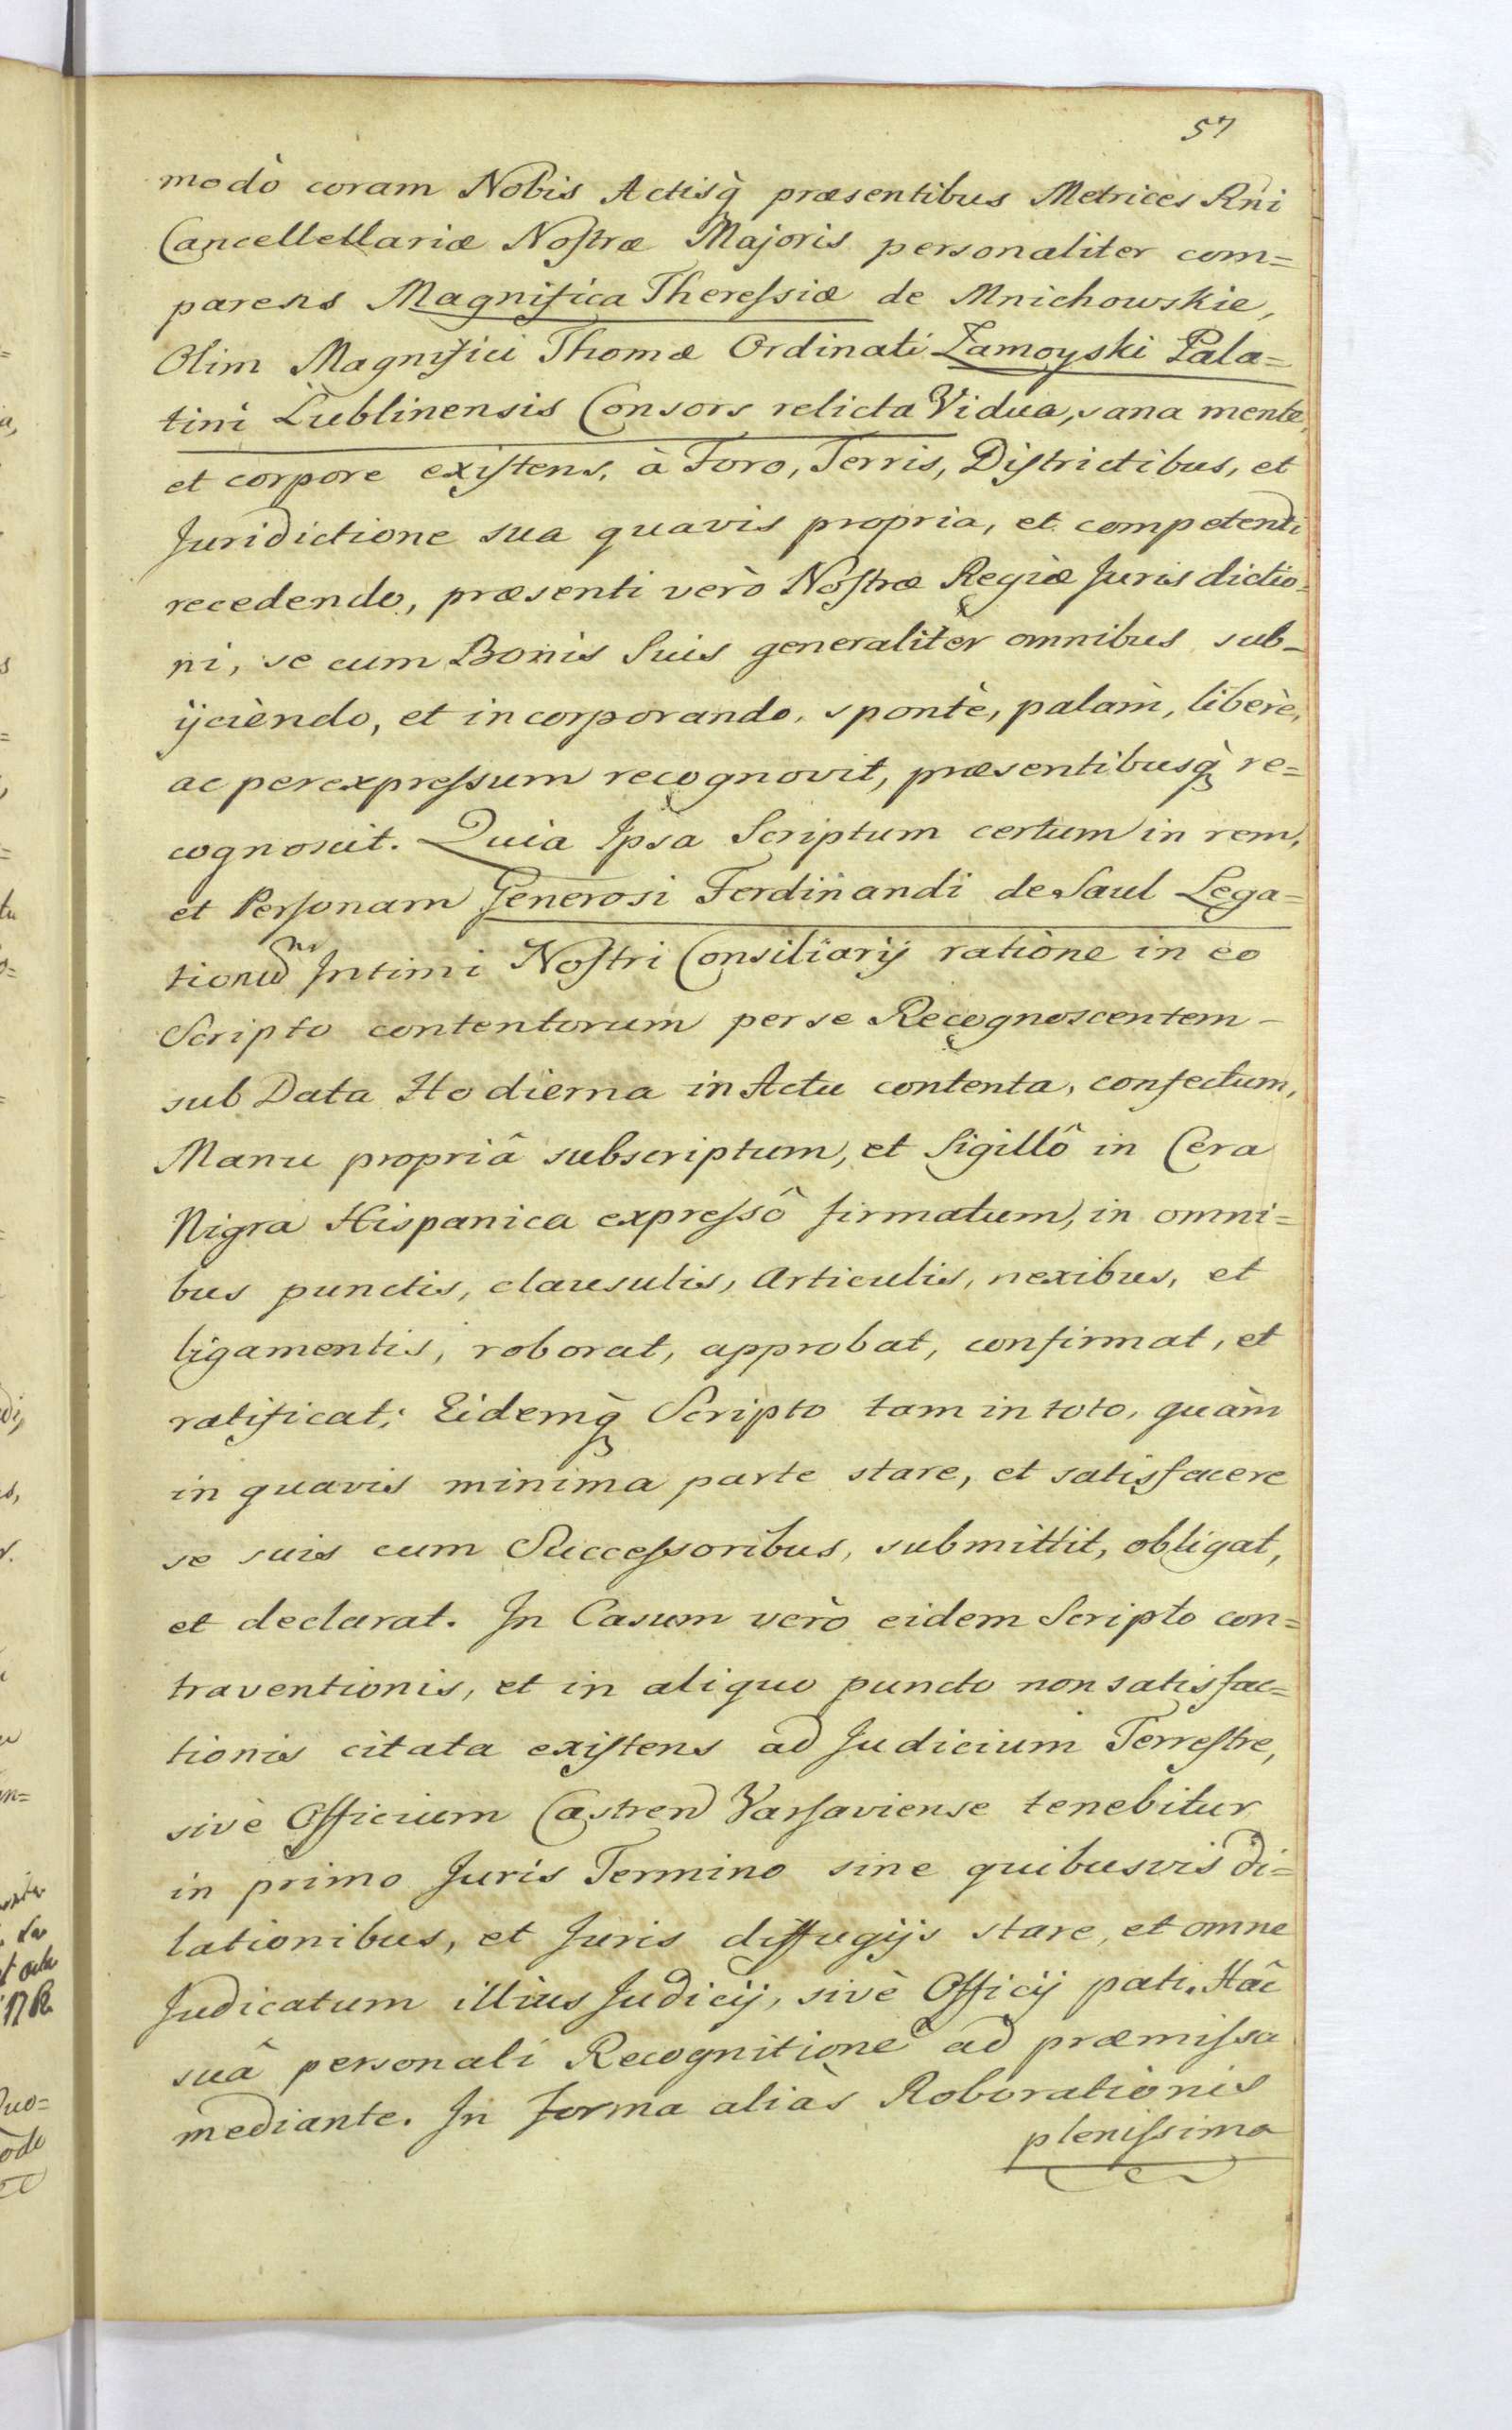 57
modò coram Nobis Actisq̀ præsentibus Metrices Rni
Cancellellariæ Nostræ Majoris personaliter com=
parens Magnifica Theressiæ de Mnichowskie,
Olim Magnifici Thomæ Ordinati Zamoyski Pala=
tini Lublinensis Consors relicta Vidua, sana mente,
et corpore existens, à Foro, Terris, Districtibus, et
Juridictione sua quavis propria, et competenti
recedendo, præsenti verò Nostræ Regiæ Juris dictio=
ni, se cum Bonis Suis generaliter omnibus sub=
ijciendo, et incorporando, spontè, palàm, liberè,
ac perexpressum recognovit, præsentibusq̀ re=
cognoscit. Quia Ipsa Scriptum certum in rem,
et Personam Generosi Ferdinandi de Saul Lega=
tionu Intimi Nostri Consiliarij ratione in eo
Scripto contentorum per se Recognoscentem -
sub Data Hodierna in Actu contenta, confectum,
Manu propriâ subscriptum, et Sigillô in Cera
Nigra Hispanica expressô firmatum, in omni=
bus punctis, clausulis, Articulis, nexibus, et
ligamentis, roborat, approbat, confirmat, et
ratificat; Eidemq̀ Scripto tam in toto, quàm
in quavis minima parte stare, et satisfacere
se suis cum Successoribus, submittit, obligat,
et declarat. In Casum verò eidem Scripto con=
traventionis, et in aliquo puncto non satisfac=
tionis citata existens ad Judicium Terrestre,
sivè Officium Castren Varsaviense tenebitur
in primo Juris Termino sine quibusvis di=
lationibus, et Juris diffugijs stare, et omne
Judicatum illius Judicij, sivè Officij pati. Hâc
suâ personali Recognitione ad præmissa
mediante. In forma aliàs Roborationis
plenissima